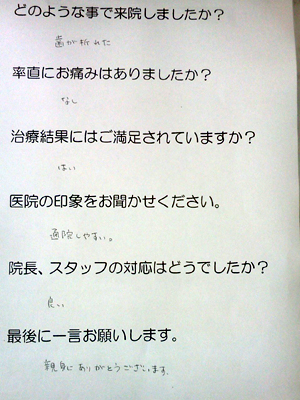 どのような事で来院しましたか？
歯が折れた
率直にお痛みはありましたか？
なし
治療結果にはご満足されていますか？
はい
医院の印象をお聞かせください。
通院しやすい。
院長、スタッフの対応はどうでしたか？
良い
最後に一言お願いします。
親身にありがとうございます。